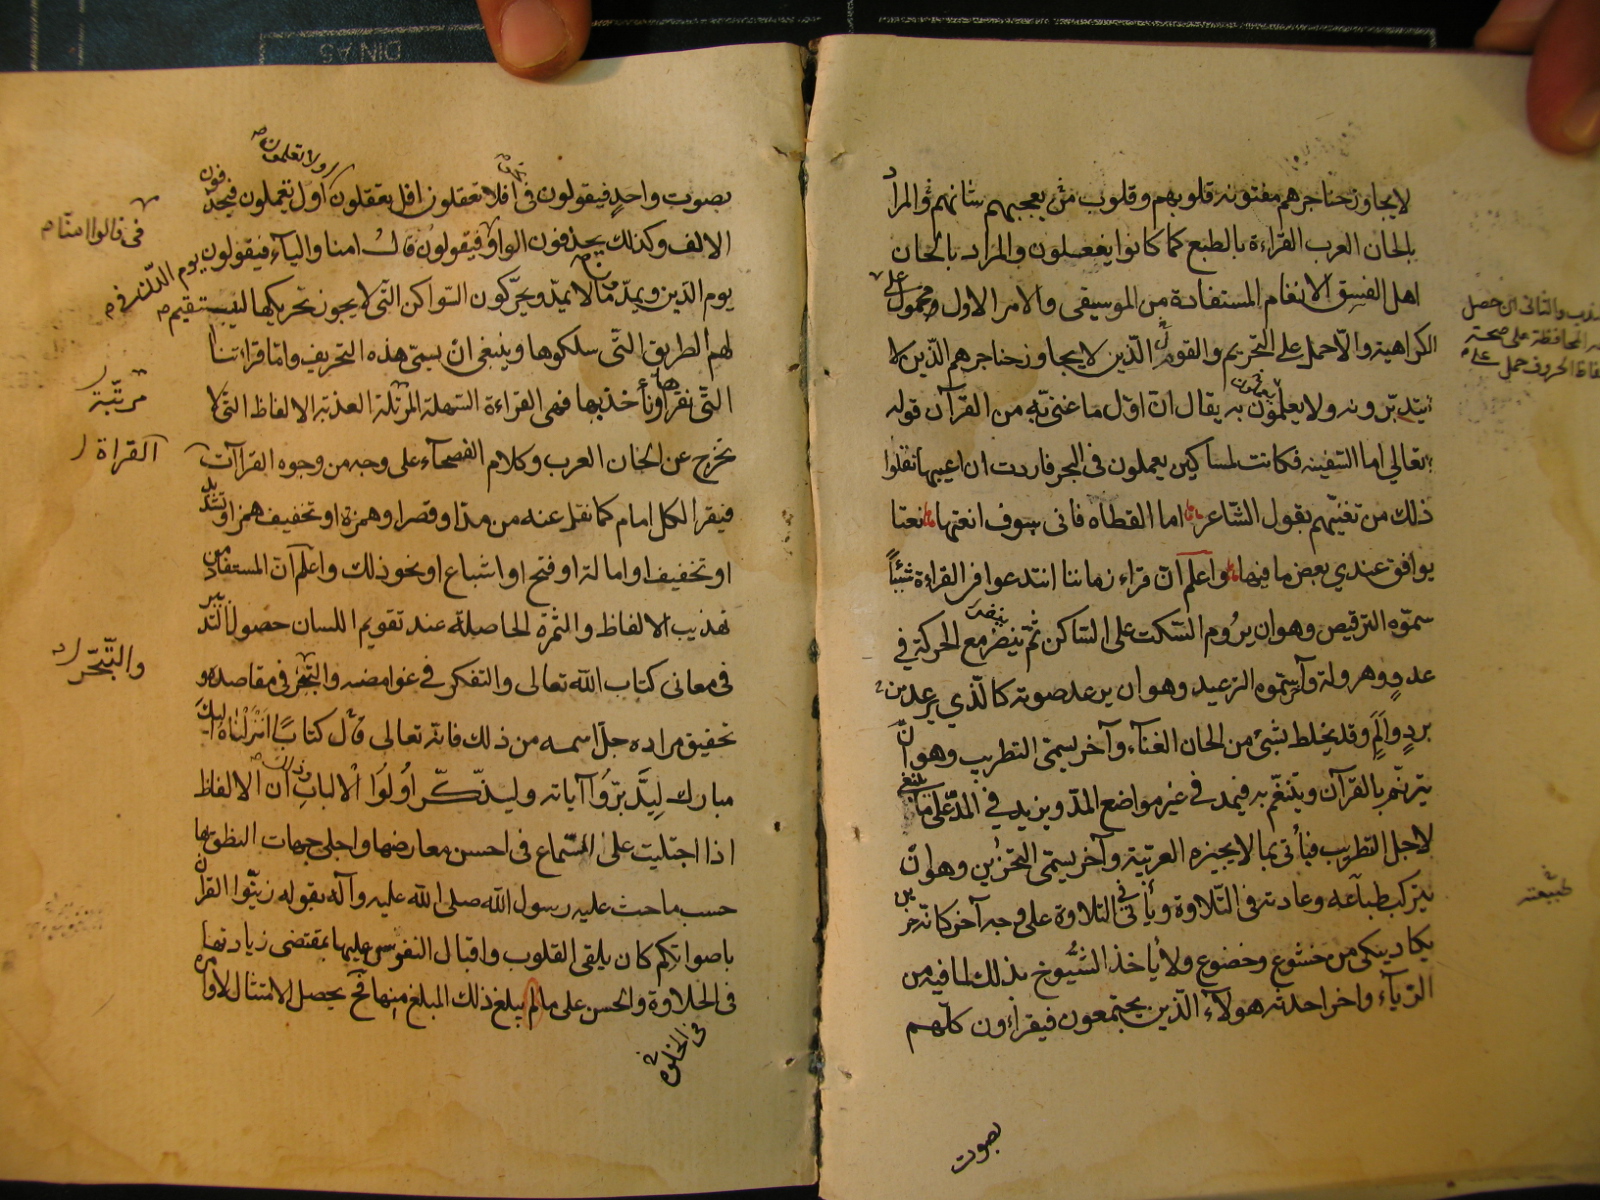 لا يجاوز حناجرهم مفتونة قلوبهم وقلوب من يعجبهم شانهم والمراد
بالحان العرب القراءة بالطبع كما كانوا يفعلون والمراد بالحان
اهل الفسق الانغام المستفادة من الموسيقى والامر الاول محمول على
الكراهية والّا حمل على التحريم والقوم الّذين لا يجاوز حناجرهم الّذين لا
يتدبّرونه ولا يعلمون به يقال انّ اوّل ما غنّى به من القرآن قوله
تعالى اما السّفينة فكانت لمساكين يعملون في البحر فاردت ان اعيبها نقلوا
ذلك من تغنّيهم بقول الشّاعر اما القطاة فانى سوف انعتها نعتا
يوافق عندي بعض ما فيها واعلم انّ قراء زماننا ابتدعوا في القراءة شيئاً
سمّوه الترقيص وهو ان يروم السّكت على السّاكن ثمّ ينفر مع الحركة في
عدو وهرولة وآخر سمّوه الترعيد وهو ان يرعد صوته كالّذي يرعد من
برد وألم وقد يخلط بشئ من الحان الغنآء وآخر يسمّى التطريب وهو ان
يترنّم بالقرآن ويتنغّم به فيمد في غير مواضع المدّ ويزيد في المدّ على ما ينبغي
لاجل التطريب فيأتى بما لا يجيزه العربيّة وآخر يسمّى التحزين وهو ان
يترك طباعه وعادته في التّلاوة ويأتى في التلاوة على وجه آخر كانّه حزين
يكاد يبكى من خشوع وخضوع ولا يأخذ الشّيوخ بذلك لما فيه من
الرّيآء واخر احدثه هولآء الّذين يجتمعون فيقراون كلّهم
بصوت
والثانى ان حصل
المحافظة على صحة
الفاظ الحروف حمل على
طبيعته
بصوت واحد فيقولون فى افلا تعقلون افل تعقلون اول تعملون فيحذفون
اولا تعلمون
الالف وكذلك يحذفون الواو فيقولون قال امنا والياء فيقولون يوم الدّن في
فى قالوا امنّا
يوم الدّين ويمدّون ما لا يمدّ ويحرّكون السّواكن الّتى لا يجوز تحريكها ليستقيم
لهم الطريق الّتى سلكوها وينبغى ان يسمّى هذه التحريف وامّا قراءتنا
الّتى نقراها ونأخذ بها فهى القراءة السّهلة المرتّلة العذبة الالفاظ الّتى لا
مرتّبة
تخرج عن الحان العرب وكلام الفصحآء على وجه من وجوه القراآت
القراة
فيقرا لكل امام كما نقل عنه من مدّ او قصر او همزة او تخفيف همز او تشديد
او تخفيف او امالة او فتح او اشباع او نحو ذلك واعلم انّ المستفاد من
تهذيب الالفاظ والثمرة الحاصلة عند تقويم اللسان حصول التدبير
فى معانى كتاب الله تعالى والتفكر في غوامضه والتبحّر في مقاصده و
والتّبحّر
تحقيق مراده جلّ اسمه من ذلك فانّه تعالى قال كتابٌ انزلناه اليك
مبارك ليدّبّروا آياته وليذّكّر اولوا الالباب وذلك ان الالفاظ
اذا اجتليت على السّماع فى احسن معارضها واجلى جهات النطق بها
حسب ما حثّ عليه رسول الله صلى الله عليه وآله بقوله زيّنوا القرآن
باصواتكم كان يلقى القلوب واقبال النفوس عليها بمقتضى زيادتها
فى الحلاوة والحسن على ما لم يبلغ ذلك المبلغ منها فح يحصل الامتثال لاوامره
فى الحلاوة